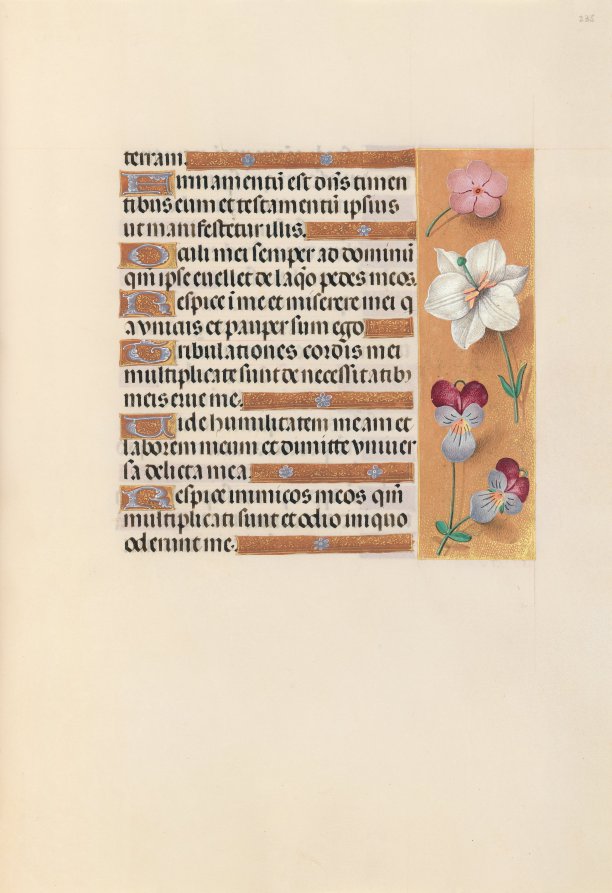 235
terram.
Firmamentū est dn̄s timen
tibus eum et testamentū ipsius
ut manifestetur illis.
Oculi mei semper ad dominū
qm̄ ipse euellet de laq̄o pedes meos.
Respice ī me et miserere mei q
a vnicus et pauper sum ego
Tribulationes cordis mei
multiplicate sunt de necessitatibꝫ
meis erue me.
Vide humilitatem meam et
laborem meum et dimitte vniuer
sa delicta mea.
Respice inimicos meos qm̄
multiplicati sunt et odio iniquo
oderunt me.